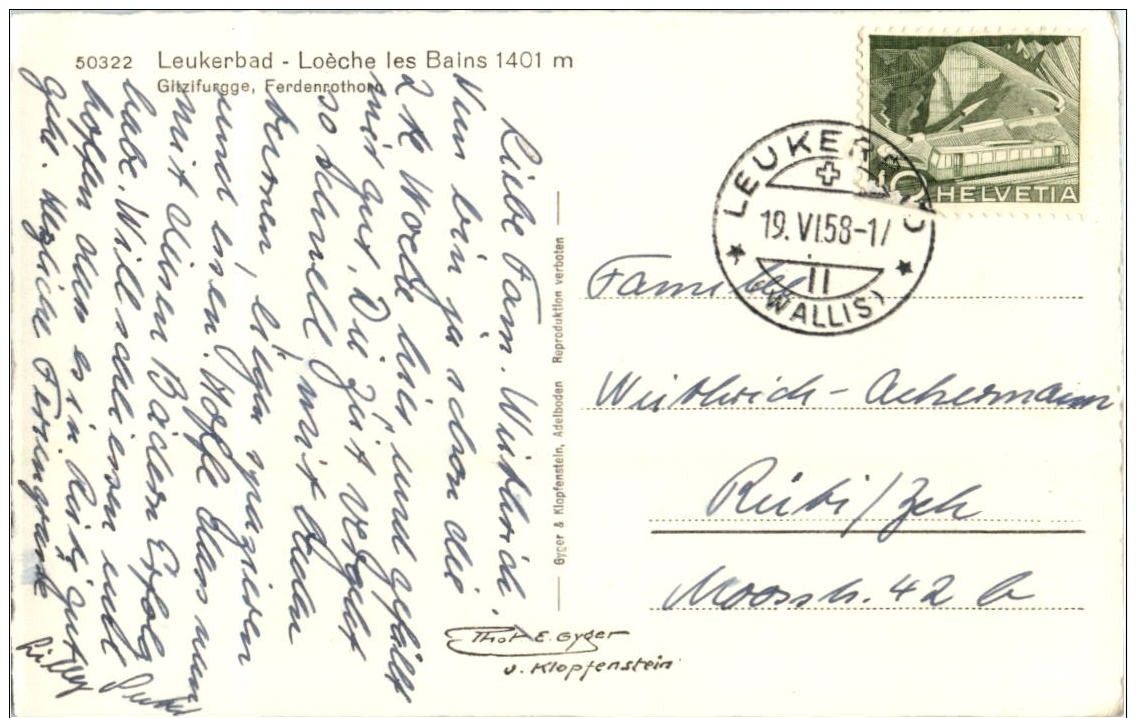 50322 Leukerbad - Loèche les Bains 1401 m
Gitzifurgge, Ferdenrothorn
Liebe Fam. Wüthrich.
Nun bin ja schon die
2te Woche hier und gefällt
mir gut, Die Zeit vergeht
so schnell, mit baden
turnen, liegen spazieren
und essen. Hoffe dass nun
mit diesen Bädern Erfolg
habe. Will scheints und
hoffen dass es in Rüti gut
geht. Herzliche Feriengrüsse
Lilly
Gyger & Klopfenstein, Adelboden Reproduktion verboten
Phot. E. Gyger
u. Klopfenstein
HELVETIA
LEUKERBAD
19. VI. 58-17
II
(WALLIS)
Familie
Wüthrich-Ackermann
Rüti/Zch
Moosstr. 42 b